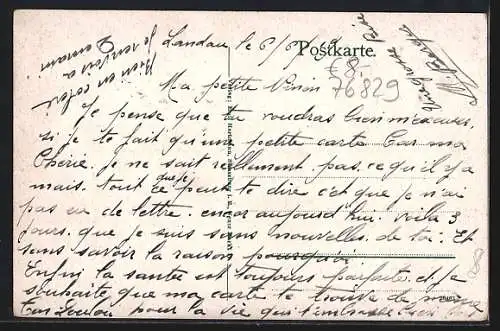 Landau le 6/6/19
Postkarte.
€8.-
76829
Ma petite
Je pense que tu voudras bien m'excuser,
si je te fait qu'une petite carte Car ma
Cherie. je ne sait reellement. pas. ce qu'il y a
mais. tout ce que je peut te dire c'et que je n'ai
pas eu de lettre. encor aujourd hui. voila 3
jours. que je suis sans nouvelles. de toi. Et
sens savoir la raison pourquoi
Enfin la santée est toujours parfaite. et je
souhaite que ma carte te trouve de meme
Ton Loulou pour la vie qui t'embrasse bien
8
une grosse
mon
Je
a